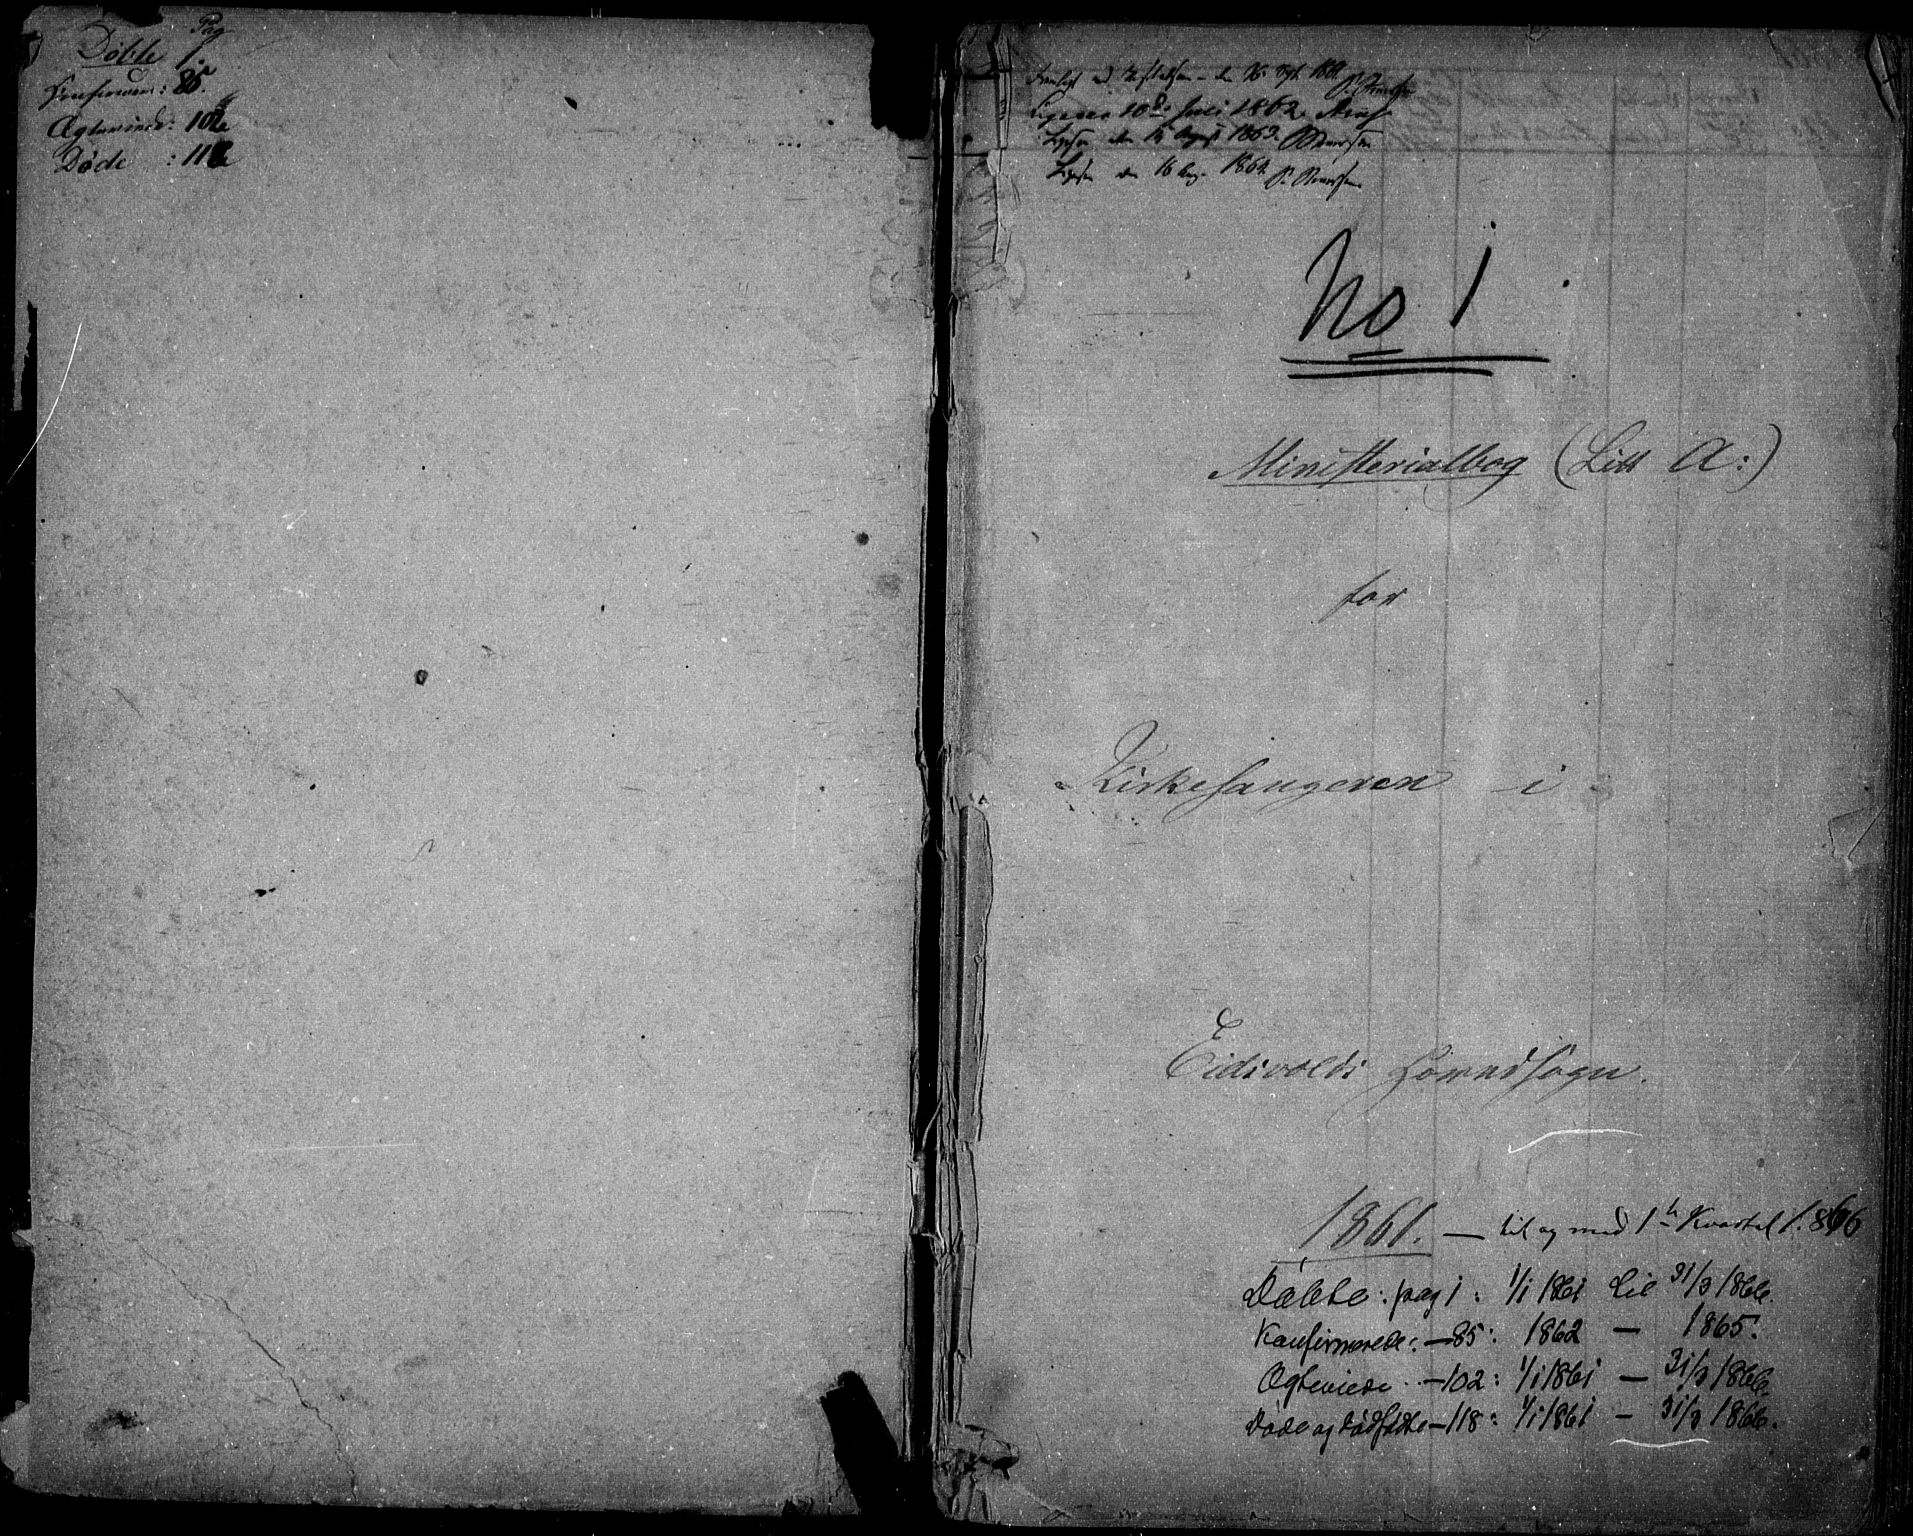 Pag
Døbte 1.
Konfirmere: 85.
Ægteviede: 102
Døde : 118
Fremlagt ved Visitatsen den 26 Sept. 1861.
Ligesaa 10de Juli 1862
Ligesaa den 15 August 1863.
Ligesaa den 16 Aug. 1864.
No 1
Ministerialbog (Litt A:)
for
Kirkesangeren i
Eidsvolds Hovedsogn.
1861. — til og med 1ste Kvartal 1866
Døbte: pag 1: 1/1 1861 til 31/3 1866.
Konfirmerede: — 85: 1862 — 1865.
Ægteviede — 102: 1/1 1861 — 31/3 1866.
Døde og dødfødte — 118: 1/1 1861 — 31/3 1866.